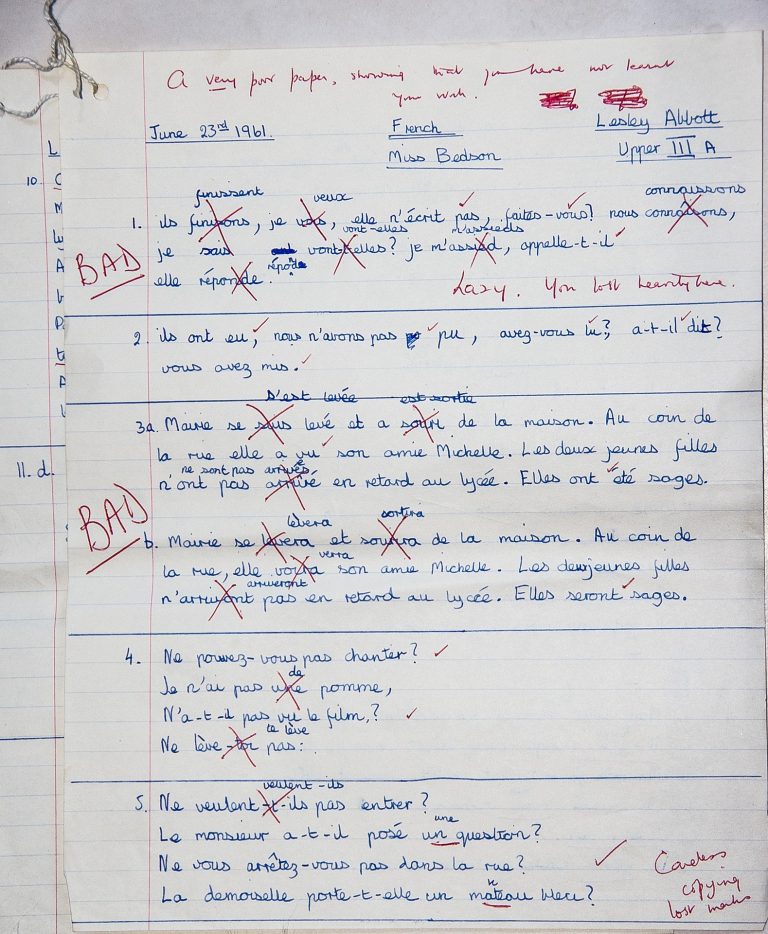 A very poor paper, showing that you have not learnt
your work.
June 23rd 1961. French Lesley Abbott
Miss Bedson Upper III A
L
10. C
M
W
A
L
P
t
A
11. d.
finissent veux connaissons
1. ils finisons, je vois, elle n'écrit pas, faites-vous? nous connâsons,
vont-elles m'assieds
je sais vont-t-elles? je m'assied, appelle-t-il
BAD
répond
elle réponde.
Lazy. You lost heavily here.
2. ils ont eu, nous n'avons pas pu, avez-vous lu? a-t-il dit?
vous avez mis.
s'est levée est sortie
3a. Mairie se suis levé et a souri de la maison. Au coin de
la rue elle a vu son amie Michelle. Les deux jeunes filles
ne sont pas arrivés
n'ont pas arrivé en retard au lycée. Elles ont été sages.
BAD
lèvera sortira
b. Mairie se levera et sourira de la maison. Au coin de
verra
la rue, elle voira son amie Michelle. Les deux jeunes filles
arriveront
n'arriveont pas en retard au lycée. Elles seront sages.
4. Ne pouvez-vous pas chanter?
de
Je n'ai pas une pomme,
N'a-t-il pas vu le film,?
te lève
Ne lève-toi pas:
veulent-ils
5. Ne veulent-t-ils pas entrer?
une
Le monsieur a-t-il posé un question?
Ne vous arrêtez-vous pas dans la rue?
La demoiselle porte-t-elle un mateau bleu?
Careless
copying
lost marks